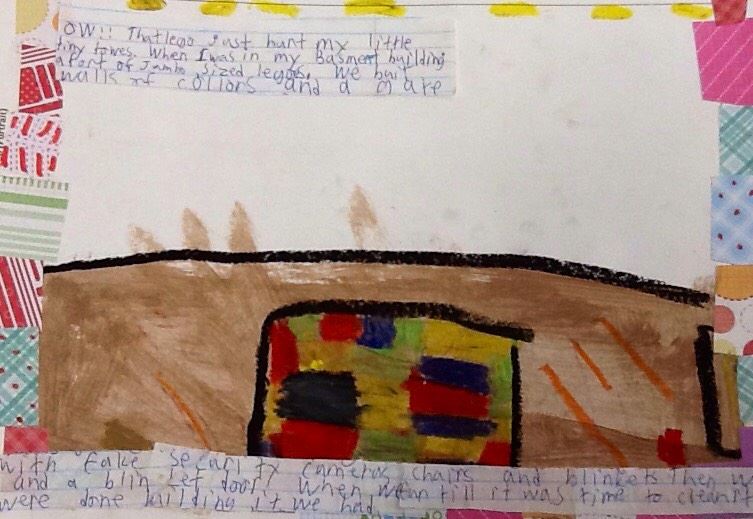 OW!! That lego Just hurt my little
tiny towes. When I was in my Basment building
a fort of Jambo sized legos. We buit
walls of collors and a
with fake security cameras chairs and blinkets Then w
and a blin ket door! When till it was time to clean
were done building it we had